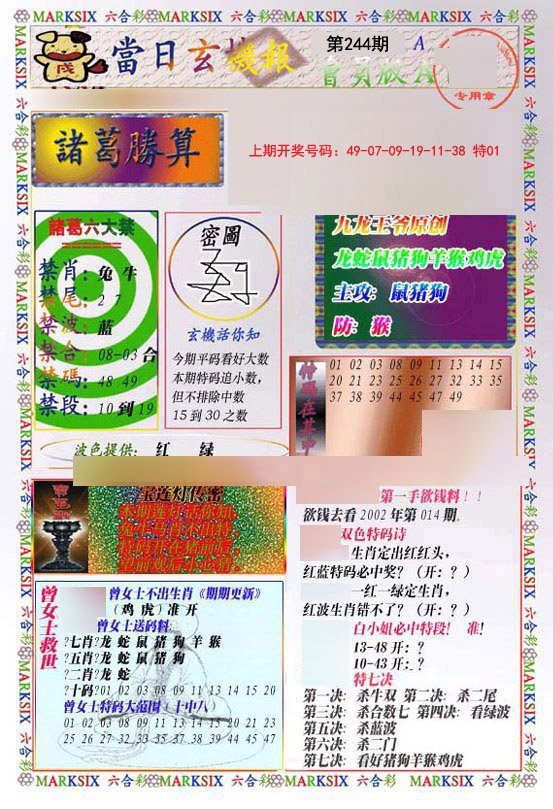 MARKSIX 六合彩 MARKSIX 六合彩 MARKSIX 六合彩 MARKSIX 六合彩
當日玄機報
第244期
A
會員版A
专用章
諸葛勝算
上期开奖号码: 49-07-09-19-11-38 特01
諸葛六大禁
禁肖: 兔 牛
禁尾: 2 7
禁波: 蓝
禁合: 08-03 合
禁碼: 48 49
禁段: 10 到 19
密圖
玄機話你知
今期平码看好大数
本期特码追小数,
但不排除中数
15 到 30 之数
九龙王爷原创
龙蛇鼠猪狗羊猴鸡虎
主攻: 鼠猪狗
防: 猴
特码在其中
01 02 03 08 09 11 13 14 15
20 21 23 25 26 27 32 33 35
37 38 39 44 45 47 49
波色提供: 红 绿
宝莲灯传密
第一手欲钱料!!
欲钱去看 2002 年第 014 期.
双色特码诗
生肖定出红红头,
红蓝特码必中奖? (开: ? )
一红一绿定生肖,
红波生肖错不了? (开: ? )
白小姐必中特段! 准!
13-48 开: ?
10-43 开: ?
特七决
第一决: 杀牛双 第二决: 杀二尾
第三决: 杀合数七 第四决: 看绿波
第五决: 杀蓝波
第六决: 杀二门
第七决: 看好猪狗羊猴鸡虎
曾女士救世
曾女士不出生肖《期期更新》
(鸡 虎) 准 开
曾女士送码料:
?七肖?龙 蛇 鼠 猪 狗 羊 猴
?五肖?龙 蛇 鼠 猪 狗
?二肖?龙 蛇
?十码?01 02 03 08 09 13 14 15 20
曾女士特码大范围 (十中八)
01 02 03 08 09 11 13 14 15 20 21 23
25 26 27 32 33 35 37 38 39 44 45 47
MARKSIX 六合彩 MARKSIX 六合彩 MARKSIX 六合彩 MARKSIX 六合彩